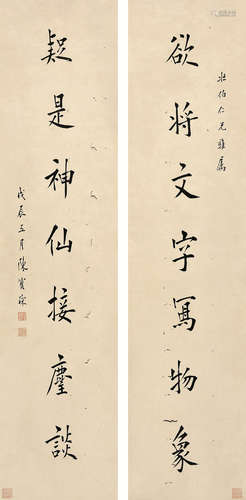 壯伯仁兄雅屬
欲將文字寫物象
疑是神仙接麈談
戊辰三月陳寶琛